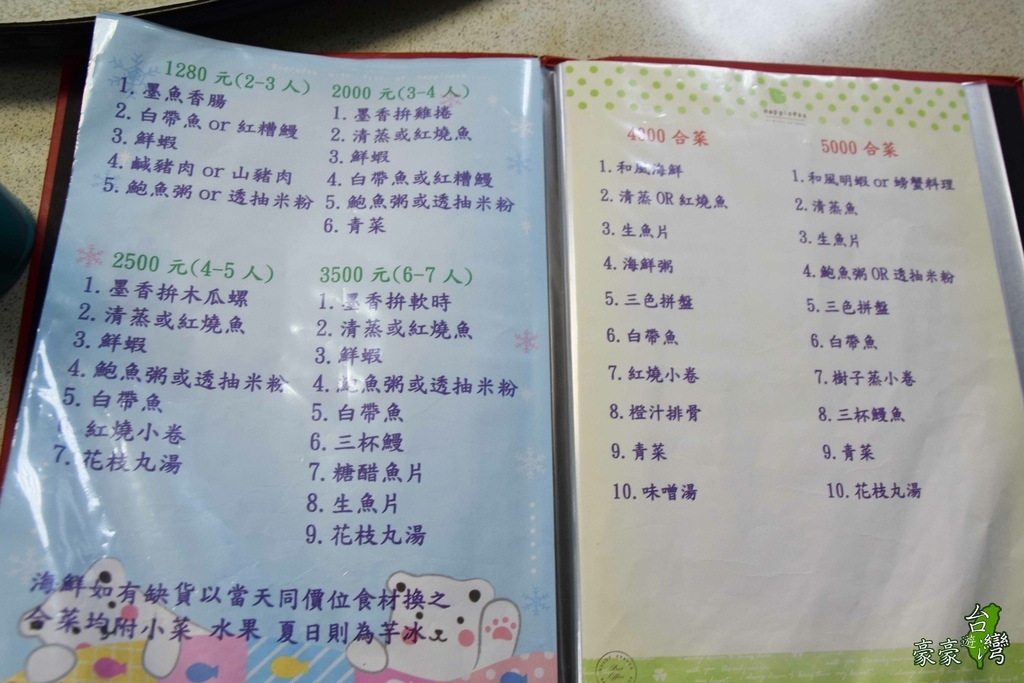 1280 元(2-3 人)
1. 墨魚香腸
2. 白帶魚 or 紅糟鰻
3. 鮮蝦
4. 鹹豬肉 or 山豬肉
5. 鮑魚粥 or 透抽米粉
2000 元(3-4 人)
1. 墨香拚雞捲
2. 清蒸或紅燒魚
3. 鮮蝦
4. 白帶魚或紅糟鰻
5. 鮑魚粥或透抽米粉
6. 青菜
2500 元(4-5 人)
1. 墨香拚木瓜螺
2. 清蒸或紅燒魚
3. 鮮蝦
4. 鮑魚粥或透抽米粉
5. 白帶魚
紅燒小卷
7. 花枝丸湯
3500 元(6-7 人)
1. 墨香拚軟時
2. 清蒸或紅燒魚
3. 鮮蝦
4. 鮑魚粥或透抽米粉
5. 白帶魚
6. 三杯鰻
7. 糖醋魚片
8. 生魚片
9. 花枝丸湯
海鮮如有缺貨以當天同價位食材換之
合菜均附小菜 水果 夏日則為芋冰
4000 合菜
1. 和風海鮮
2. 清蒸 OR 紅燒魚
3. 生魚片
4. 海鮮粥
5. 三色拼盤
6. 白帶魚
7. 紅燒小卷
8. 橙汁排骨
9. 青菜
10. 味噌湯
5000 合菜
1. 和風明蝦 or 螃蟹料理
2. 清蒸魚
3. 生魚片
4. 鮑魚粥 OR 透抽米粉
5. 三色拼盤
6. 白帶魚
7. 樹子蒸小卷
8. 三杯鰻魚
9. 青菜
10. 花枝丸湯
豪豪遊台灣